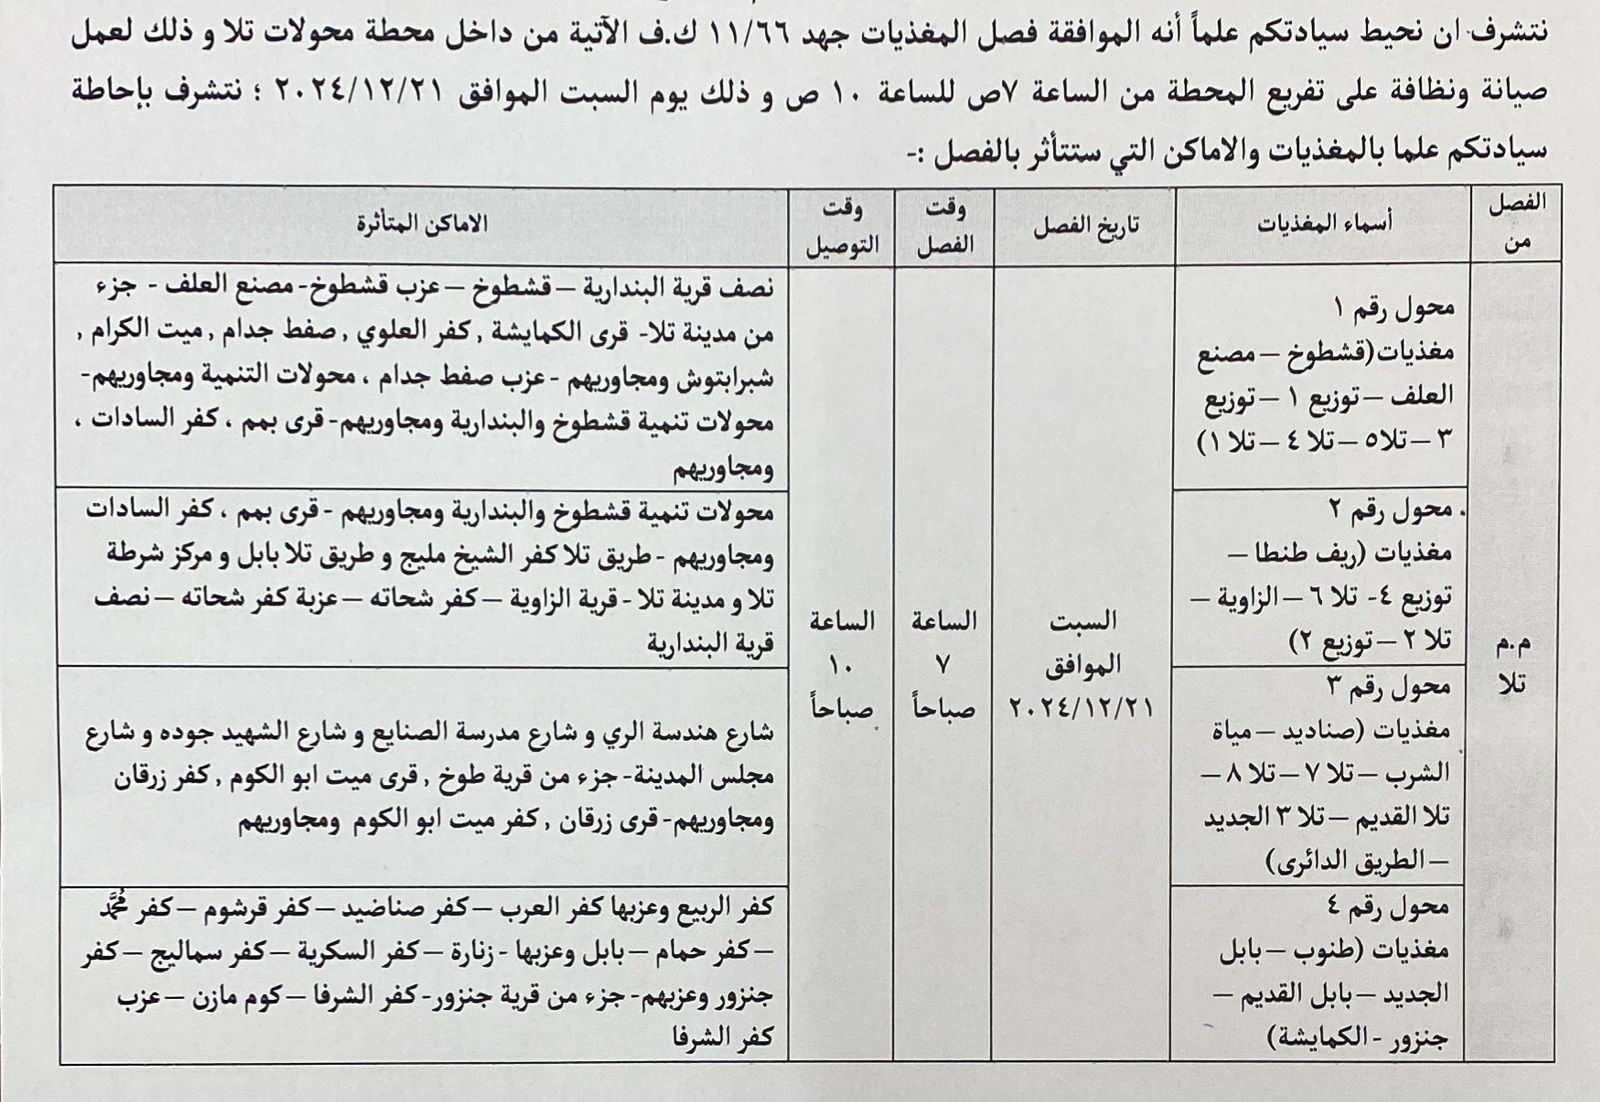 نتشرف ان نحيط سيادتكم علماً أنه الموافقة فصل المغذيات جهد ١١/٦٦ ك.ف الآتية من داخل محطة محولات تلا و ذلك لعمل
صيانة ونظافة على تفريع المحطة من الساعة ٧ص للساعة ١٠ ص و ذلك يوم السبت الموافق ٢٠٢٤/١٢/٢١ ؛ نتشرف بإحاطة
سيادتكم علما بالمغذيات والاماكن التي ستتأثر بالفصل :-
الفصل
من
أسماء المغذيات
تاريخ الفصل
وقت
الفصل
وقت
التوصيل
الاماكن المتأثرة
م.م
تلا
محول رقم ١
مغذيات(قشطوخ – مصنع
العلف – توزيع ١ – توزيع
٣ – تلا٥ – تلا ٤ – تلا ١)
السبت
الموافق
٢٠٢٤/١٢/٢١
الساعة
٧
صباحاً
الساعة
١٠
صباحاً
نصف قرية البندارية – قشطوخ – عزب قشطوخ- مصنع العلف - جزء
من مدينة تلا- قرى الكمايشة , كفر العلوي , صفط جدام , ميت الكرام ,
شبرابتوش ومجاوريهم - عزب صفط جدام ، محولات التنمية ومجاوريهم-
محولات تنمية قشطوخ والبندارية ومجاوريهم- قرى بمم ، كفر السادات ،
ومجاوريهم
محول رقم ٢
مغذيات (ريف طنطا –
توزيع ٤- تلا ٦ – الزاوية –
تلا ٢ – توزيع ٢)
محولات تنمية قشطوخ والبندارية ومجاوريهم - قرى بمم ، كفر السادات
ومجاوريهم - طريق تلا كفر الشيخ مليج و طريق تلا بابل و مركز شرطة
تلا و مدينة تلا - قرية الزاوية – كفر شحاته – عزبة كفر شحاته – نصف
قرية البندارية
محول رقم ٣
مغذيات (صناديد – مياة
الشرب – تلا ٧ – تلا ٨ –
تلا القديم – تلا ٣ الجديد
– الطريق الدائرى)
شارع هندسة الري و شارع مدرسة الصنايع و شارع الشهيد جوده و شارع
مجلس المدينة- جزء من قرية طوخ , قرى ميت ابو الكوم , كفر زرقان
ومجاوريهم- قرى زرقان , كفر ميت ابو الكوم ومجاوريهم
محول رقم ٤
مغذيات (طنوب – بابل
الجديد – بابل القديم –
جنزور - الكمايشة)
كفر الربيع وعزبها كفر العرب – كفر صناضيد – كفر قرشوم – كفر مُحمَّد
– كفر حمام – بابل وعزبها - زنارة – كفر السكرية – كفر سماليج – كفر
جنزور وعزبهم- جزء من قرية جنزور- كفر الشرفا – كوم مازن – عزب
كفر الشرفا